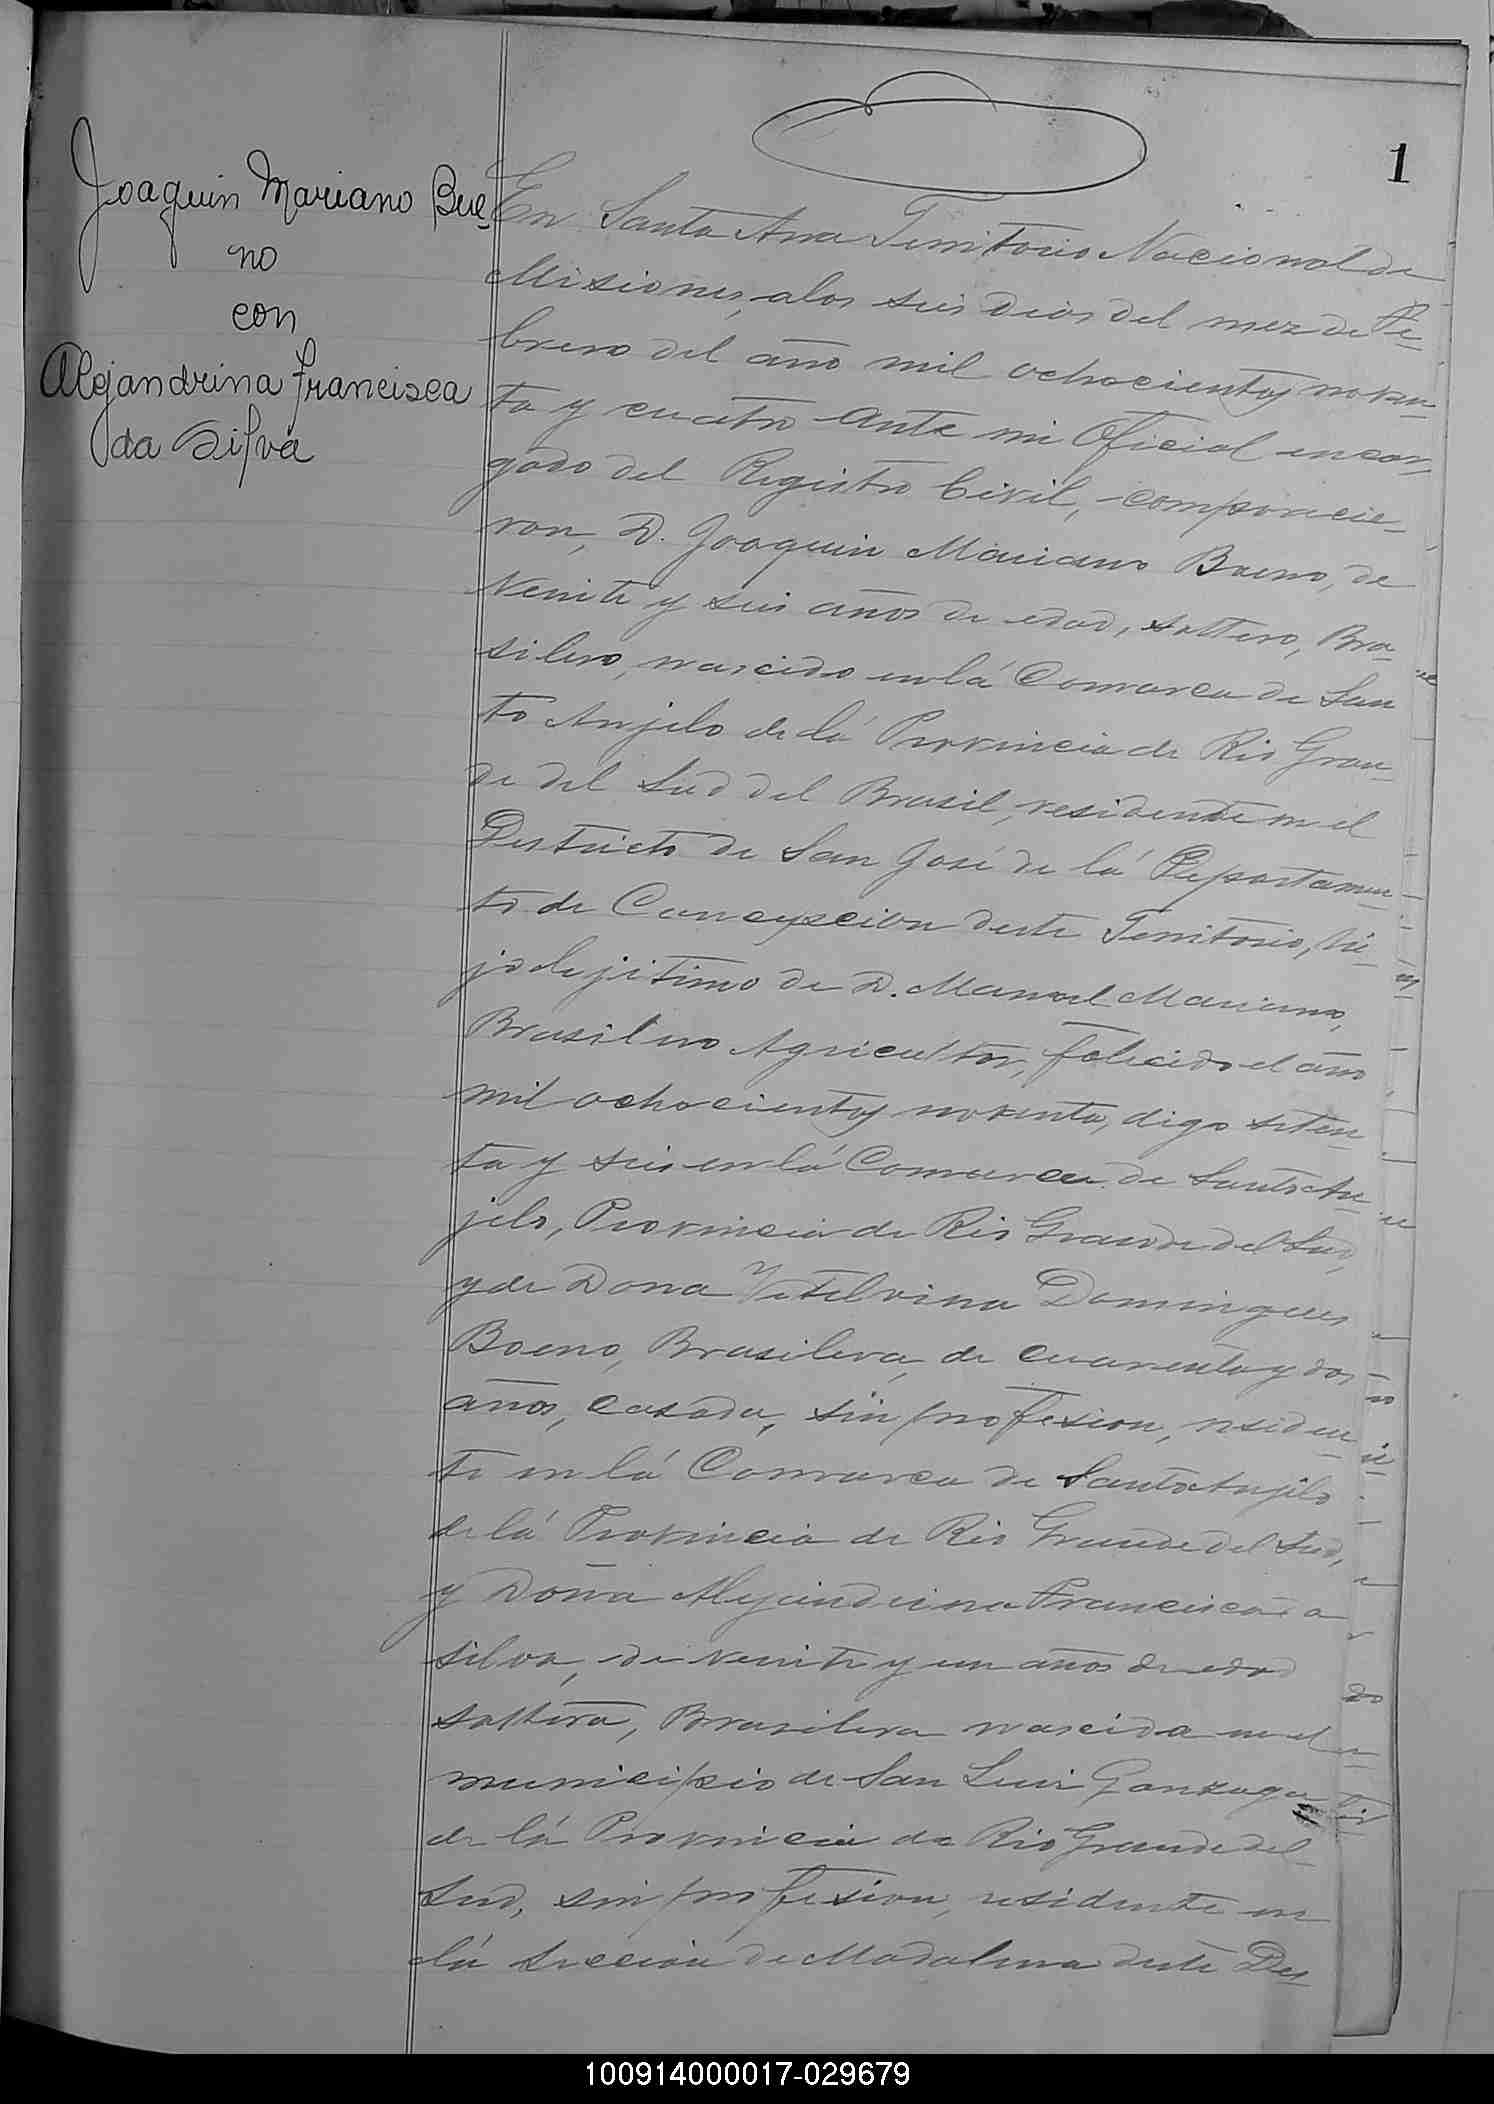 1
Joaquin Mariano Bue-
no
con
Alejandrina Francisca
da Silva
En Santa Ana Territorio Nacional de
Misiones, a los seis dias del mez de Fe-
brero del año mil ochocientos noven-
ta y cuatro ante mi Oficial encar-
gado del Registro Civil, comparecie-
ron, D. Joaquin Mariano Boeno, de
Veinte y seis años de edad, soltero, Bra-
silero, nascido en lá Comarca de San
to Anjelo de lá Provincia de Rio Gran-
de del Sud del Brasil, residente en el
Destricto de San José de lá Departamen-
to de Concepscion deste Territorio, hi-
jo lejitimo de D. Manoel Mariano,
Brasilero Agricultor, falecido el año
mil ochocientos noventa, digo seten
ta y seis en lá Comarca de Santo An-
jelo, Provincia de Rio Grande del Sud,
y de Dona Domingues
Boeno, Brasilera, de cuarenta y dos
años, casada, sin profesion, residen-
te en lá Comarca de Santo Anjelo
de lá Provincia de Rio Grande del Sud,
y Doña Alejandrina Francisca da
Silva, de veinte y un años de edad
soltera, Brasilera nascida en el
municipio de San Luis Gonzaga
de lá Provincia de Rio Grande del
Sud, sin profesion, residente en
lá Seccion de Madalena deste De-
100914000017-029679